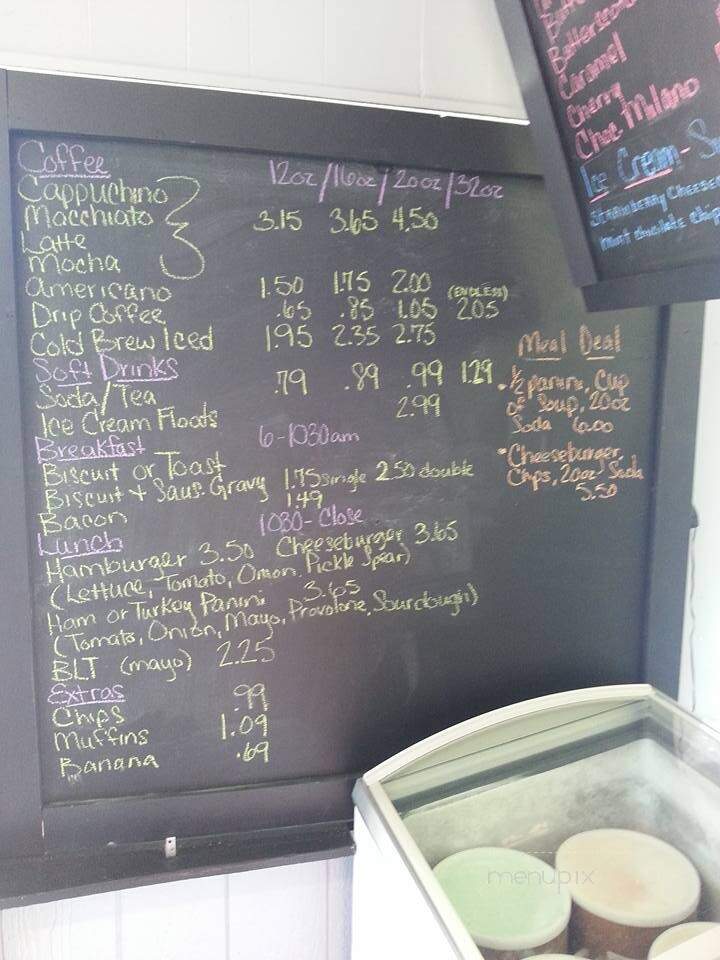 Coffee
12oz/16oz/20oz/32oz
Cappuchino
Macchiato 3.15 3.65 4.50
Latte
Mocha
Americano 1.50 1.75 2.00
Drip Coffee .65 .85 1.05 (ENDLESS) 2.05
Cold Brew Iced 1.95 2.35 2.75
Soft Drinks
Soda/Tea .79 .89 .99 1.29
Ice Cream Floats 2.99
Breakfast 6-1030am
Biscuit or Toast
Biscuit + Saus. Gravy 1.75 single 2.50 double
Bacon 1.49
Lunch 1030-Close
Hamburger 3.50 Cheeseburger 3.65
(Lettuce, Tomato, Onion, Pickle Spear)
Ham or Turkey Panini 3.65
(Tomato, Onion, Mayo, Provolone, Sourdough)
BLT (mayo) 2.25
Extras
Chips .99
Muffins 1.09
Banana .69
Meal Deal
• 1/2 panini, Cup
of Soup, 20oz
Soda 6.00
• Cheeseburger,
Chips, 20oz Soda
5.50
Caramel
Cherry
Choc. Milano
Ice Cream-
Strawberry Cheese
mint chocolate chip
menupix